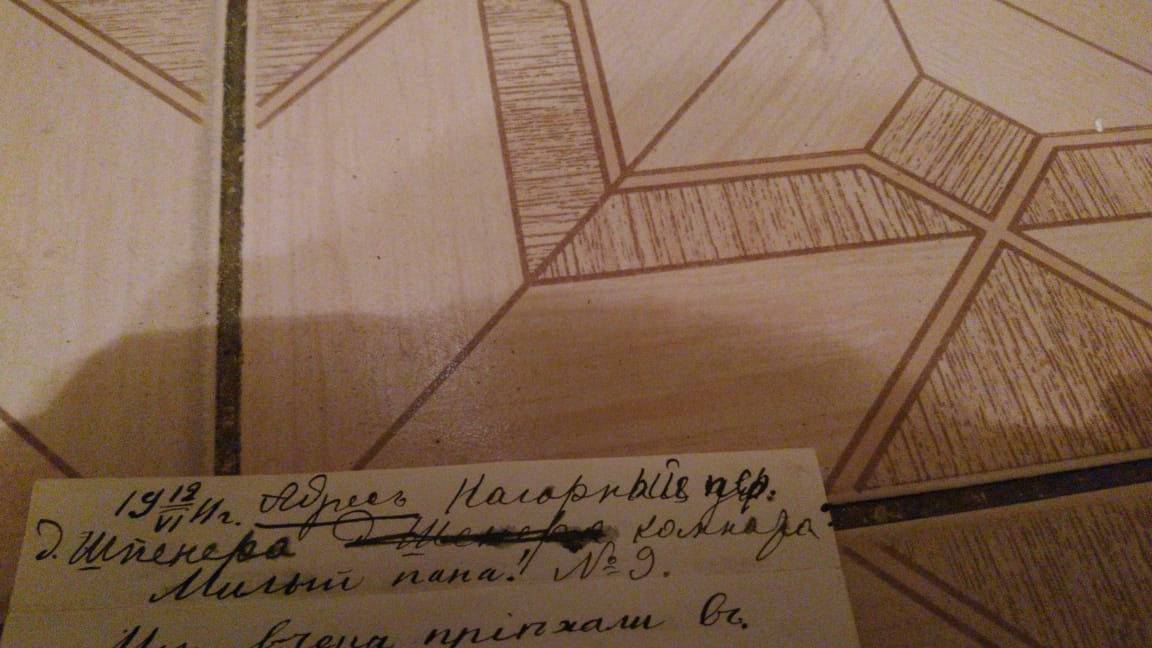 19 12/VI 11 г. Адресъ Нагорный пер.
д. Шпенера комната
Милый папа! № 9.
Мы вчера пріѣхали въ